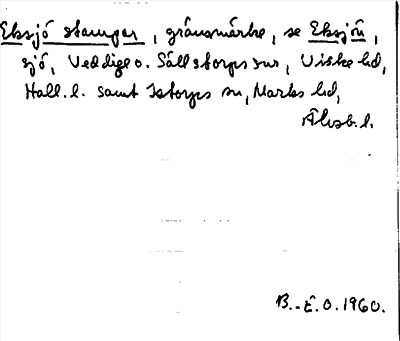 Eksjö stampar, gränsmärke, se Eksjön,
sjö, Veddige o. Sällstorps snr, Viske hd,
Hall. l. samt Istorps sn, Marks hd,
Älvsb. l.
B.-E.O. 1960.